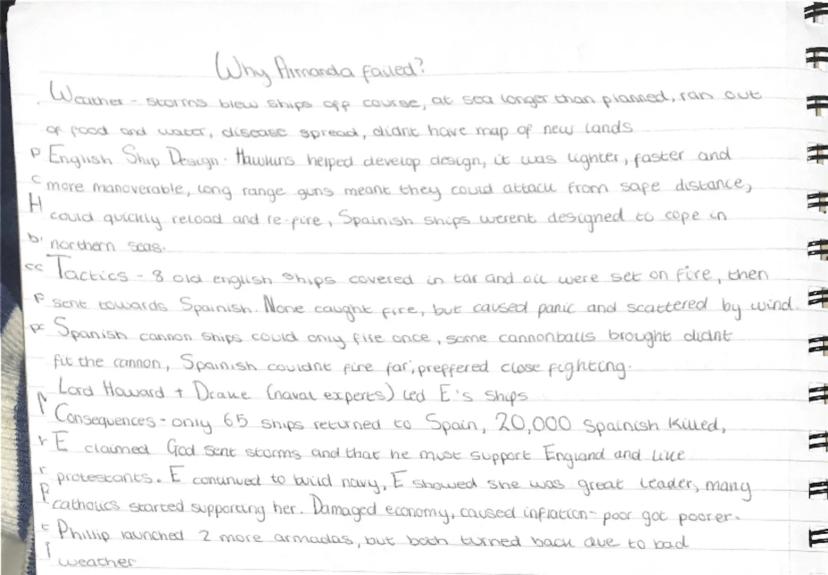 Why Armanda failed?
Weather - storms blew ships off course, at sea longer than planned, ran out
of food and water, disease spread, didnt have map of new lands
English Ship Design - Hawkins helped develop design, it was lighter, faster and
more manoverable, long range guns meant they could attack from safe distance,
could quickly reload and re-fire, Spainish ships werent designed to cope in
northern seas.
Tactics - 8 old english ships covered in tar and oil were set on fire, then
sent towards Spainish. None caught fire, but caused panic and scattered by wind.
Spanish cannon ships could only fire once, some cannonballs brought didnt
fit the cannon, Spainish couldnt fire far, preffered close fighting.
Lord Howard + Drake (naval experts) led E's ships
Consequences - only 65 ships returned to Spain, 20,000 Spainish killed,
E claimed God sent storms and that he must support England and like
protestants. E continued to build navy, E showed she was great leader, many
catholics started supporting her. Damaged economy, caused inflation - poor got poorer.
Phillip launched 2 more armadas, but both turned back due to bad
weather